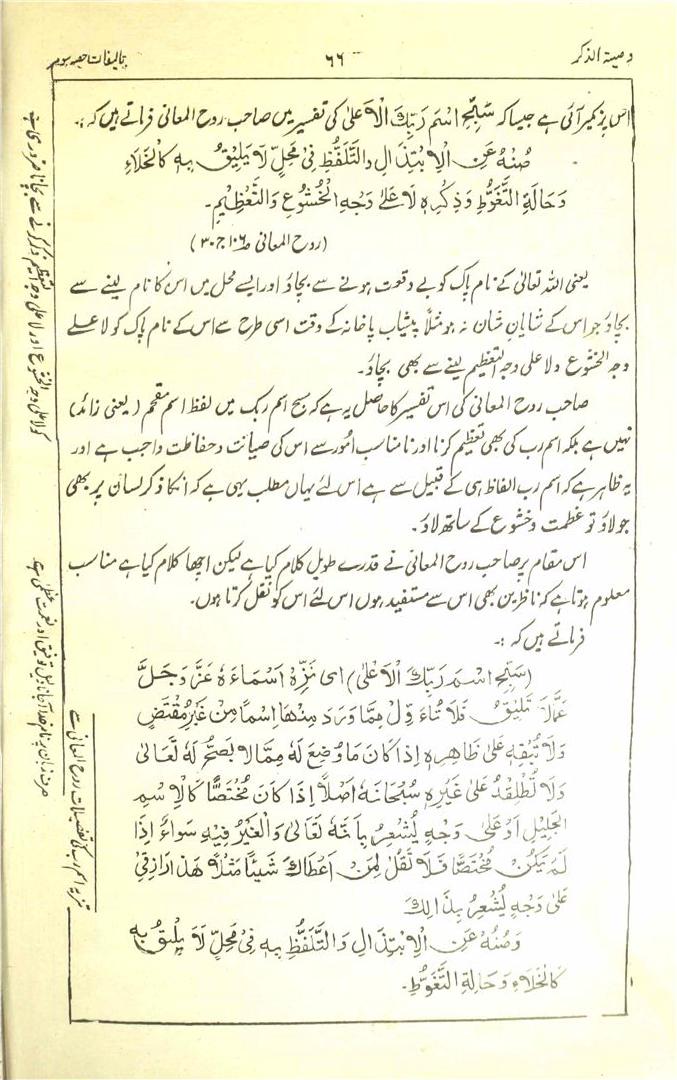 وصیۃ الذکر
۶۶
تالیفات حصہ سوم
اس پر نکیر آئی ہے جیسا کہ سَبِّحِ اسْمَ رَبِّكَ الْاَعْلیٰ کی تفسیر میں صاحب روح المعانی فرماتے ہیں کہ :۔
صُنْهُ عَنِ الْاِبْتِذَالِ وَالتَّلَفُّظِ فِیْ مَحَلٍّ لَا یَلِیْقُ بِهٖ كَالْخَلَاءِ
وَحَالَةِ التَّغَوُّطِ وَذِكْرِهٖ لَا عَلیٰ وَجْهِ الْخُشُوْعِ وَالتَّعْظِیْمِ۔
(روح المعانی ص۱۰۶ ج۳۰)
یعنی اللہ تعالیٰ کے نام پاک کو بے وقعت ہونے سے بچاؤ اور ایسے محل میں اس کا نام لینے سے
بچاؤ جو اس کے شایانِ شان نہ ہو مثلاً پیشاب پاخانہ کے وقت اسی طرح سے اس کے نام پاک کو لا علے
وجہ الخشوع و لا علی وجہ التعظیم لینے سے بھی بچاؤ۔
صاحب روح المعانی کی اس تفسیر کا حاصل یہ ہے کہ سبح اسم ربک میں لفظ اسم مقحم (یعنی زائد)
نہیں ہے بلکہ اسم رب کی بھی تعظیم کرنا اور نامناسب امور سے اس کی صیانت و حفاظت واجب ہے اور
یہ ظاہر ہے کہ اسم رب الفاظ ہی کے قبیل سے ہے اس لئے یہاں مطلب یہی ہے کہ انکا ذکر لسان پر بھی
جو لاؤ تو عظمت و خشوع کے ساتھ لاؤ۔
اس مقام پر صاحب روح المعانی نے قدرے طویل کلام کیا ہے لیکن اچھا کلام کیا ہے مناسب
معلوم ہوتا ہے کہ ناظرین بھی اس سے مستفید ہوں اس لئے اس کو نقل کرتا ہوں۔
فرماتے ہیں کہ :۔
(سَبِّحِ اسْمَ رَبِّكَ الْاَعْلیٰ) ای نَزِّهْ اَسْمَاءَهٗ عَزَّ وَجَلَّ
عَمَّا لَا تَلِیْقُ فَلَا تُاَءَوِّلْ مِمَّا وَرَدَ مِنْهَا اِسْمًا مِنْ غَیْرِ مُقْتَضٍ
وَلَا تُبْقِهٖ عَلیٰ ظَاهِرِهٖ اِذَا كَانَ مَا وُضِعَ لَهٗ مِمَّا لَا یَصِحُّ لَهٗ تَعَالیٰ
وَلَا تُطْلِقْهُ عَلیٰ غَیْرِهٖ سُبْحَانَهٗ اَصْلًا اِذَا كَانَ مُخْتَصًّا كَالْاِسْمِ
الْجَلِیْلِ اَوْ عَلیٰ وَجْهٍ یُشْعِرُ بِاَنَّهٗ تَعَالیٰ وَالْغَیْرُ فِیْهِ سَوَاءٌ اِذَا
لَمْ یَكُنْ مُخْتَصًّا فَلَا تَقُلْ لِمَنْ اَعْطَاكَ شَیْئًا مَثَلًا هٰذَا رَازِقِیْ
عَلیٰ وَجْهٍ یُشْعِرُ بِذَالِكَ
وَصُنْهُ عَنِ الْاِبْتِذَالِ وَالتَّلَفُّظِ بِهٖ فِیْ مَحَلٍّ لَا یَلِیْقُ بِهٖ
كَالْخَلَاءِ وَحَالَةِ التَّغَوُّطِ۔
کو لا علی وجہ الخشوع اور لا علی وجہ التعظیم ذکر کرنے سے بچانا ضروری ہے
صرف زبان پر نام خدا آ جانا دلیل توفیق اور نعمت عظمیٰ ہے
تنزیہ اسم رب کی تفصیلات روح المعانی سے